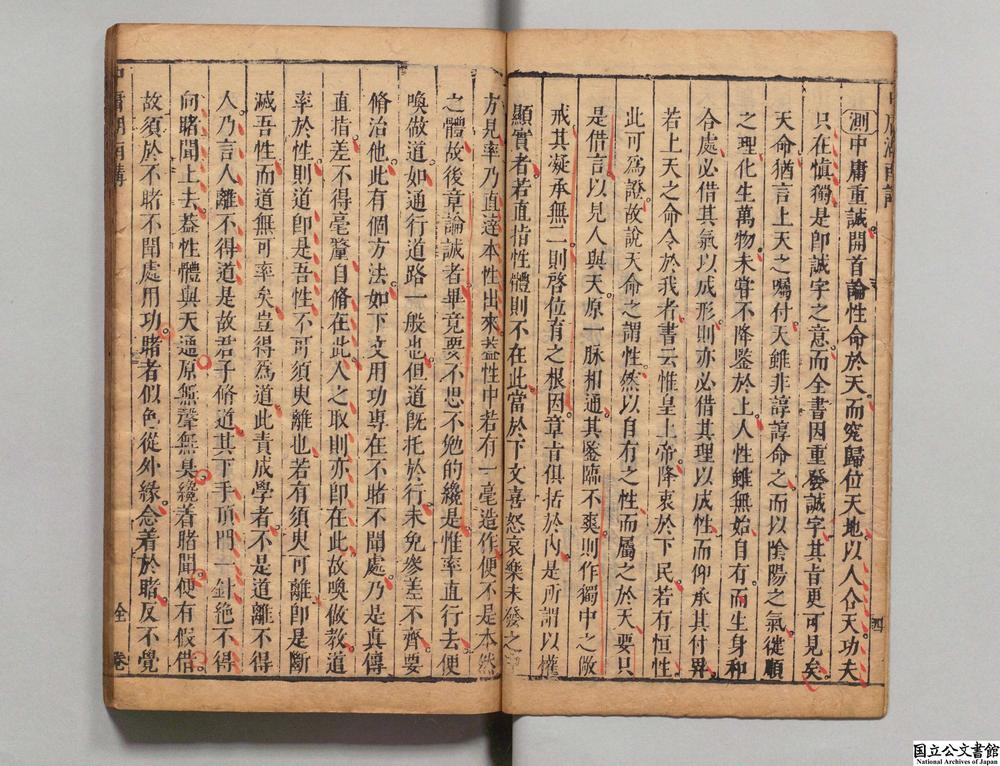 測中庸重誠開首論性命於天而究歸位天地以人合天功夫
只在慎獨是卽誠字之意而全書因重發誠字其旨更可見矣
天命猶言上天之囑付天雖非諄諄命之而以陰陽之氣健順
之理化生萬物未嘗不降鑒於上人性雖無始自有而生身和
合處必借其氣以成形則亦必借其理以成性而仰承其付畀
若上天之命令於我者書云惟皇上帝降衷於下民若有恒性
此可為證故說天命之謂性然以自有之性而屬之於天要只
是借言以見人與天原一脉相通其鑒臨不爽則作獨中之敬
戒其凝承無二則啓位育之根因章旨俱括於內是所謂以權
顯實者若直指性體則不在此當於下文喜怒哀樂未發之
方見率乃直達本性出來葢性中若有一毫造作便不是本然
之體故後章論誠者畢竟要不思不勉的纔是惟率直行去便
喚做道如通行道路一般也但道旣托於行未免參差不齊要
脩治他此有個方法如下文用功專在不睹不聞處乃是真傳
直指差不得毫釐自脩在此人之取則亦卽在此故喚做教道
率於性則道卽是吾性不可須臾離也若有須臾可離卽是斷
滅吾性而道無可率矣豈得為道此責成學者不是道離不得
人乃言人離不得道是故君子脩道其下手頂門一針絶不得
向睹聞上去葢性體與天通原無聲無臭纔着睹聞便有假借
故須於不睹不聞處用功睹者似色從外緣念着於睹反不覺
中庸湖南講
四
全卷
国立公文書館
National Archives of Japan